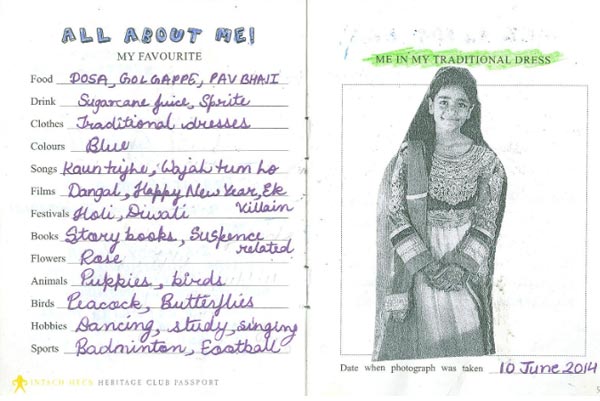 ALL ABOUT ME!
MY FAVOURITE
Food DOSA, GOLGAPPE, PAV BHAJI
Drink Sugarcane juice, Sprite
Clothes Traditional dresses
Colours Blue
Songs Kaun tujhe, Wajah tum ho
Films Dangal, Happy New Year, Ek
Villain
Festivals Holi, Diwali
Books Story books, Suspence
related
Flowers Rose
Animals Puppies, birds
Birds Peacock, Butterflies
Hobbies Dancing, study, singing
Sports Badminton, Football
INTACH HECS HERITAGE CLUB PASSPORT
ME IN MY TRADITIONAL DRESS
Date when photograph was taken 10 June 2014
5